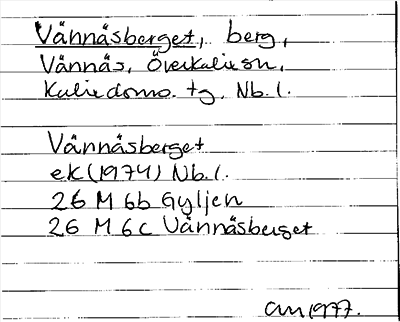 Vännäsberget, berg,
Vännäs, Överkalix sn,
Kalix domo. tg, Nb. l.
Vännäsberget
ek (1974) Nb. l.
26 M 6b Gyljen
26 M 6c Vännäsberget
1977.